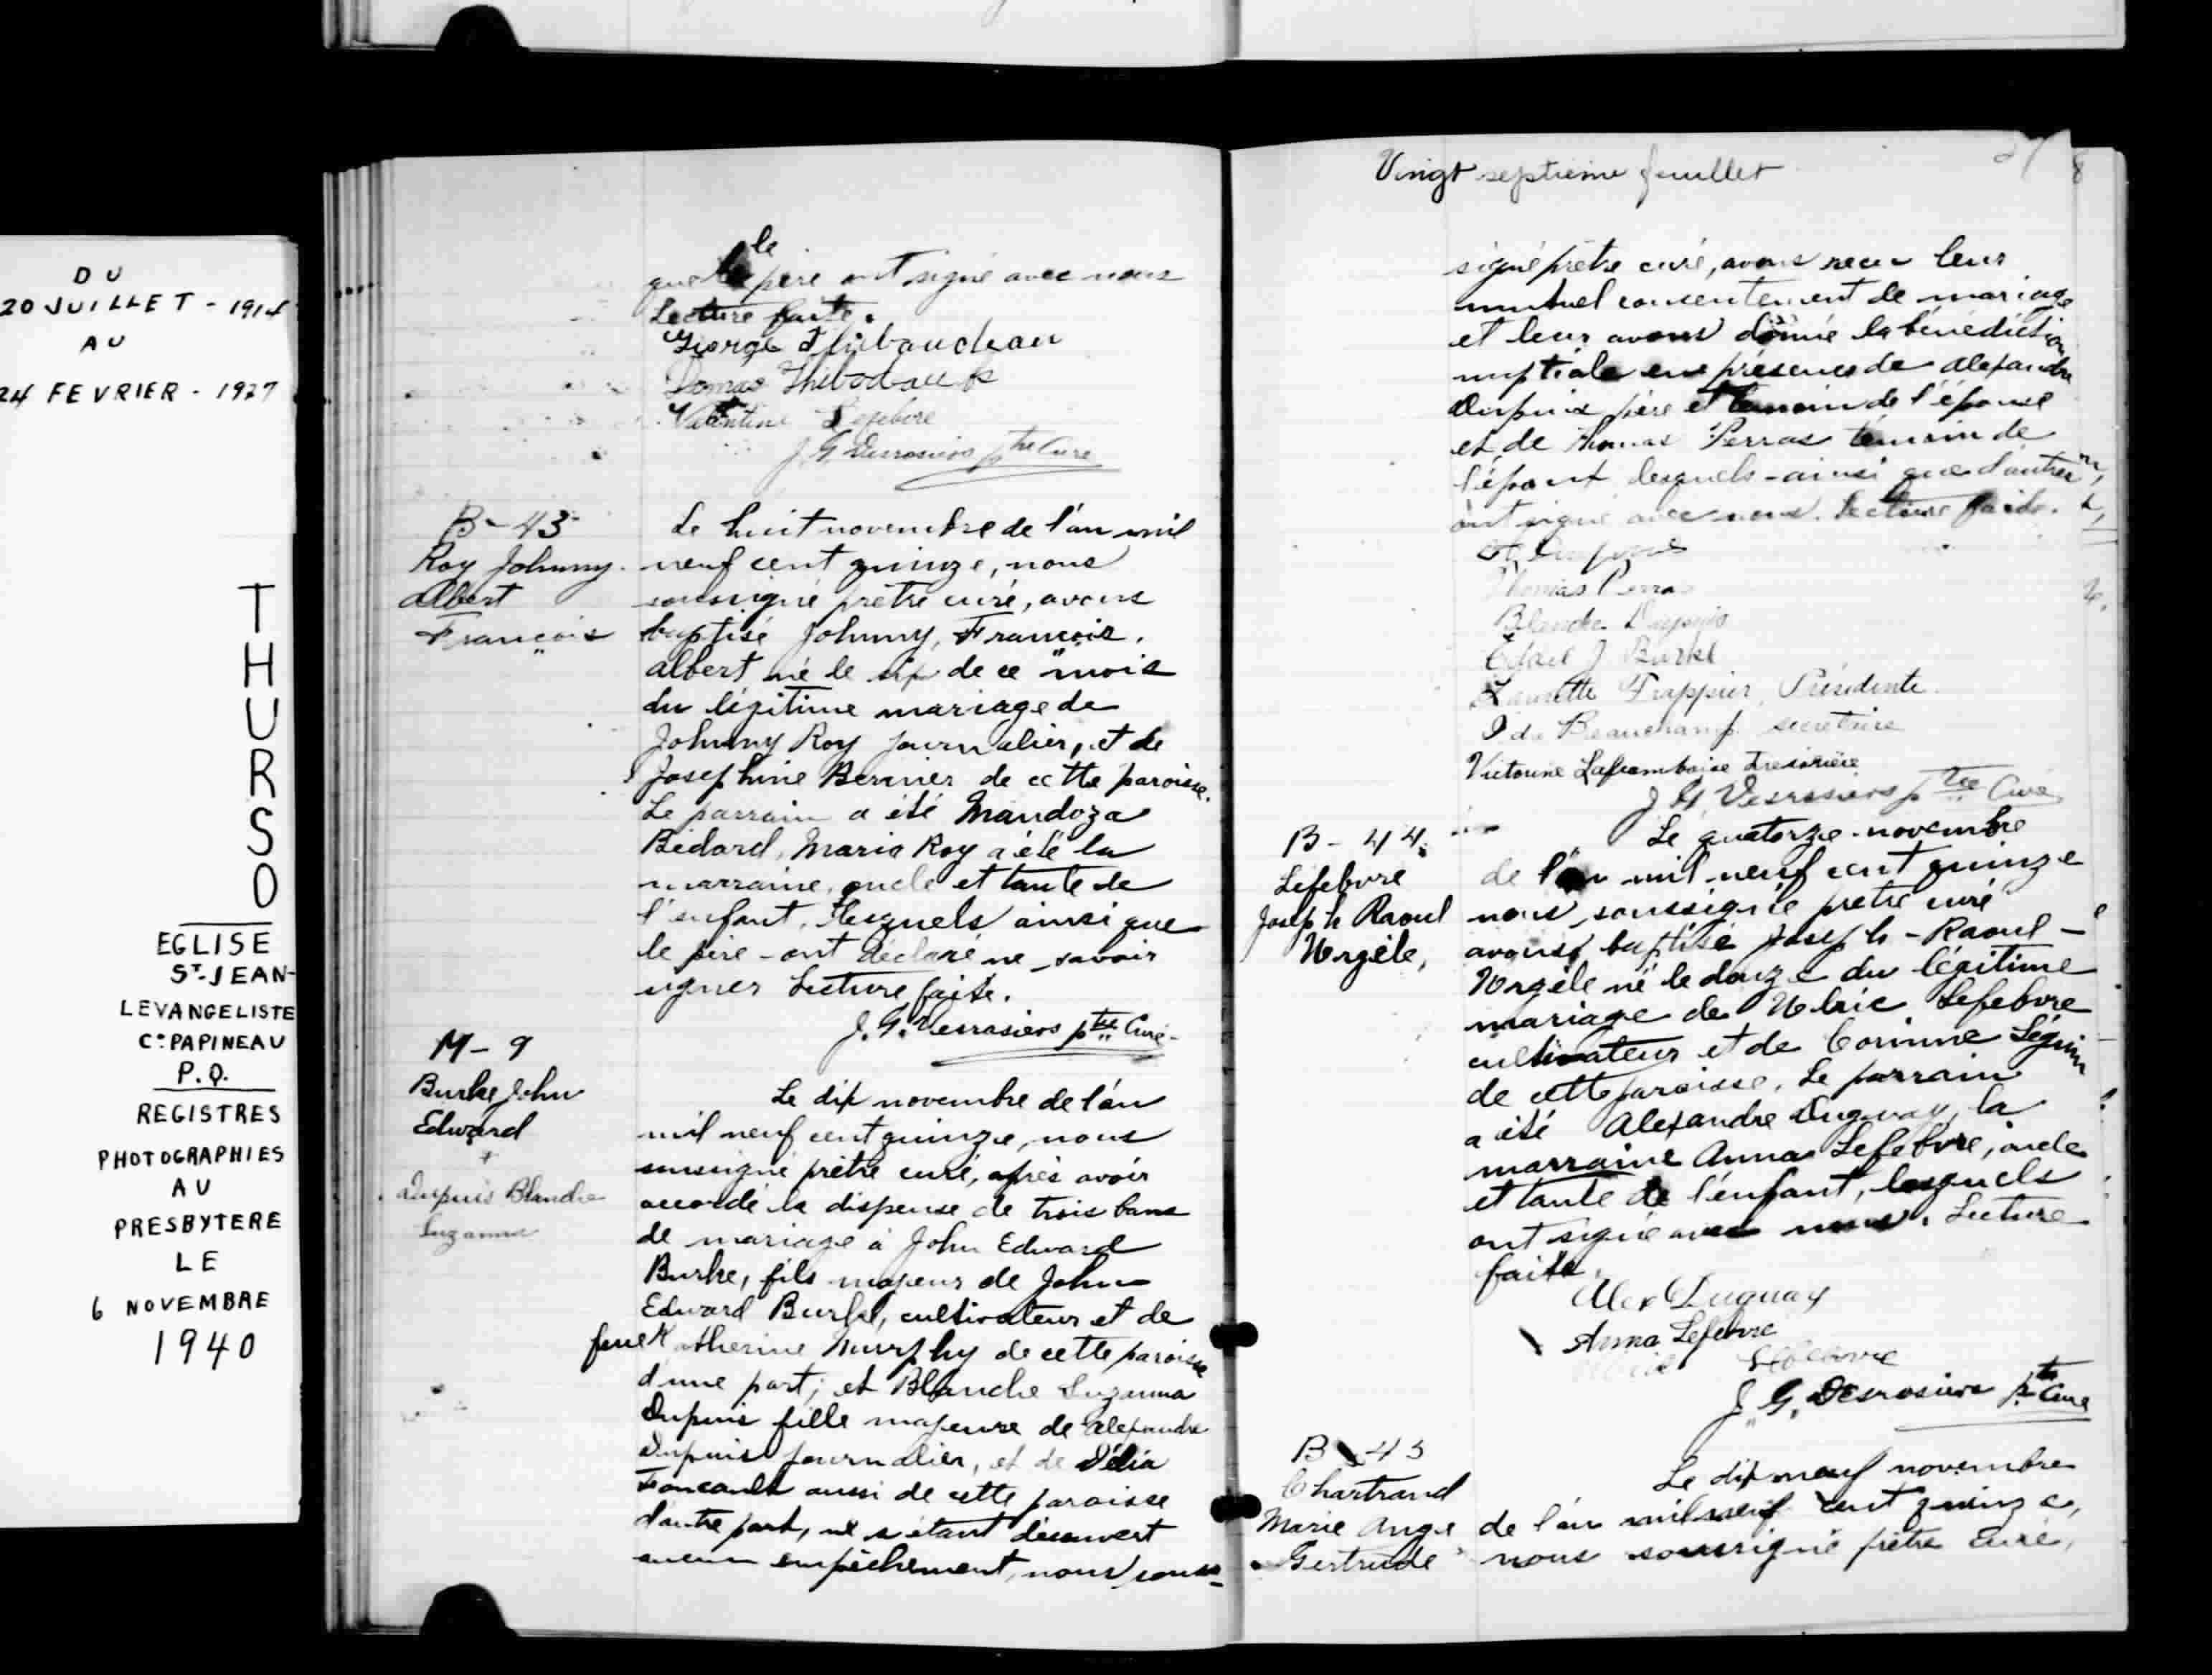 DU
20 JUILLET - 1914
AU
24 FEVRIER - 1927
THURSO
EGLISE
ST-JEAN-
LEVANGELISTE
Cº PAPINEAU
P.Q.
REGISTRES
PHOTOGRAPHIES
AU
PRESBYTERE
LE
6 NOVEMBRE
1940
le
que père ont signé avec nous
Lecture faite.
George Thibaudeau
Domas Thibodeau
Valentine Lefebvre
J. G. Desrosiers ptre Curé
B-43
Roy Johnny.
Albert
François
Le huit novembre de l'an mil
neuf cent quinze, nous
soussigné prêtre curé, avons
baptisé Johnny, François.
Albert né le six de ce mois
du légitime mariage de
Johnny Roy journalier, et de
Josephine Bernier de cette paroisse.
Le parrain a été Mandoza
Bédard, Maria Roy a été la
marraine, oncle et tante de
l'enfant, lesquels ainsi que
le père - ont déclaré ne savoir
signer Lecture faite.
J. G. Desrosiers ptre Curé-
M-9
Burke John
Edward
+
Dupuis Blanche
Suzanna
Le dix novembre de l'an
mil neuf cent quinze, nous
soussigné prêtre curé, après avoir
accordé la dispense de trois bans
de mariage à John Edward
Burke, fils majeur de John
Edward Burke, cultivateur et de
feue Katherine Murphy de cette paroisse
d'une part; et Blanche Suzanna
Dupuis fille majeure de Alexandre
Dupuis journalier, et de Délia
Foucault aussi de cette paroisse
d'autre part, ne s'étant découvert
aucun empêchement, nous sous-
Vingt septième feuillet
27
8
signé prêtre curé, avons reçu leur
mutuel consentement de mariage
et leur avons donné la bénédiction
nuptiale en présence de Alexandre
Dupuis père et témoin de l'épouse
et de Thomas Perras témoin de
l'époux lesquels - ainsi que d'autres
ont signé avec nous. Lecture faite.
Thomas Perras
Blanche Dupuis
J Burke
Laurette Trappier, Présidente
Ida Beauchamp secretaire
Victorine Laframboise tresorière
J G Desrosiers ptre Curé
B-44
Lefebvre
Joseph Raoul
Urgèle,
Le quatorze - novembre
de l'an mil neuf cent quinze
nous, soussigné prêtre curé
avons baptisé Joseph - Raoul -
Urgèle né le douze du légitime
mariage de Ulric Lefebvre
cultivateur et de Corinne Séguin
de cette paroisse. Le parrain
a été Alexandre Duguay, la
marraine Anna Lefebvre, oncle
et tante de l'enfant, lesquels
ont signé avec nous. Lecture
faite.
Alex Duguay
Anna Lefebvre
Lefebvre
J. G. Desrosiers ptre Curé
B-45
Chartrand
Marie Ange
Gertrude
Le dix neuf novembre
de l'an mil neuf cent quinze,
nous soussigné prêtre curé,